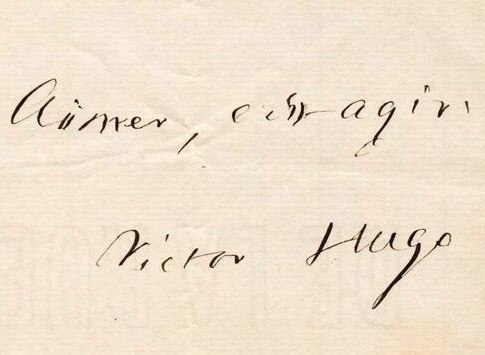 Aimer, c'est agir.
Victor Hugo